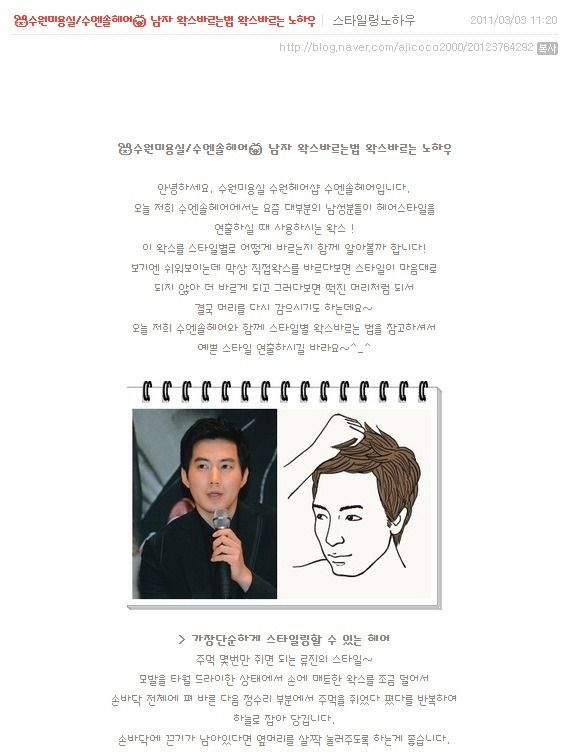 수원미용실/수엔솔헤어 남자 왁스바르는법 왁스바르는 노하우 | 스타일링노하우 2011/03/03 11:20
http://blog.naver.com/ajicoco2000/20123764292 복사
수원미용실/수엔솔헤어 남자 왁스바르는법 왁스바르는 노하우
안녕하세요. 수원미용실 수원헤어샵 수엔솔헤어입니다.
오늘 저희 수엔솔헤어에서는 요즘 대부분의 남성분들이 헤어스타일을
연출하실 때 사용하시는 왁스 !
이 왁스를 스타일별로 어떻게 바르는지 함께 알아볼까 합니다!
보기엔 쉬워보이는데 막상 직접왁스를 바르다보면 스타일이 마음대로
되지 않아 더 바르게 되고 그러다보면 떡진 머리처럼 되서
결국 머리를 다시 감으시기도 하는데요~
오늘 저희 수엔솔헤어와 함께 스타일별 왁스바르는 법을 참고하셔서
예쁜 스타일 연출하시길 바라요~^_^
> 가장단순하게 스타일링할 수 있는 헤어
주먹 몇번만 쥐면 되는 류진의 스타일~
모발을 타월 드라이한 상태에서 손에 매트한 왁스를 조금 덜어서
손바닥 전체에 펴 바른 다음 정수리 부분에서 주먹을 쥐었다 폈다를 반복하여
하늘로 잡아 당깁니다.
손바닥에 끈기가 남아있다면 옆머리를 살짝 눌러주도록 하는게 좋습니다.